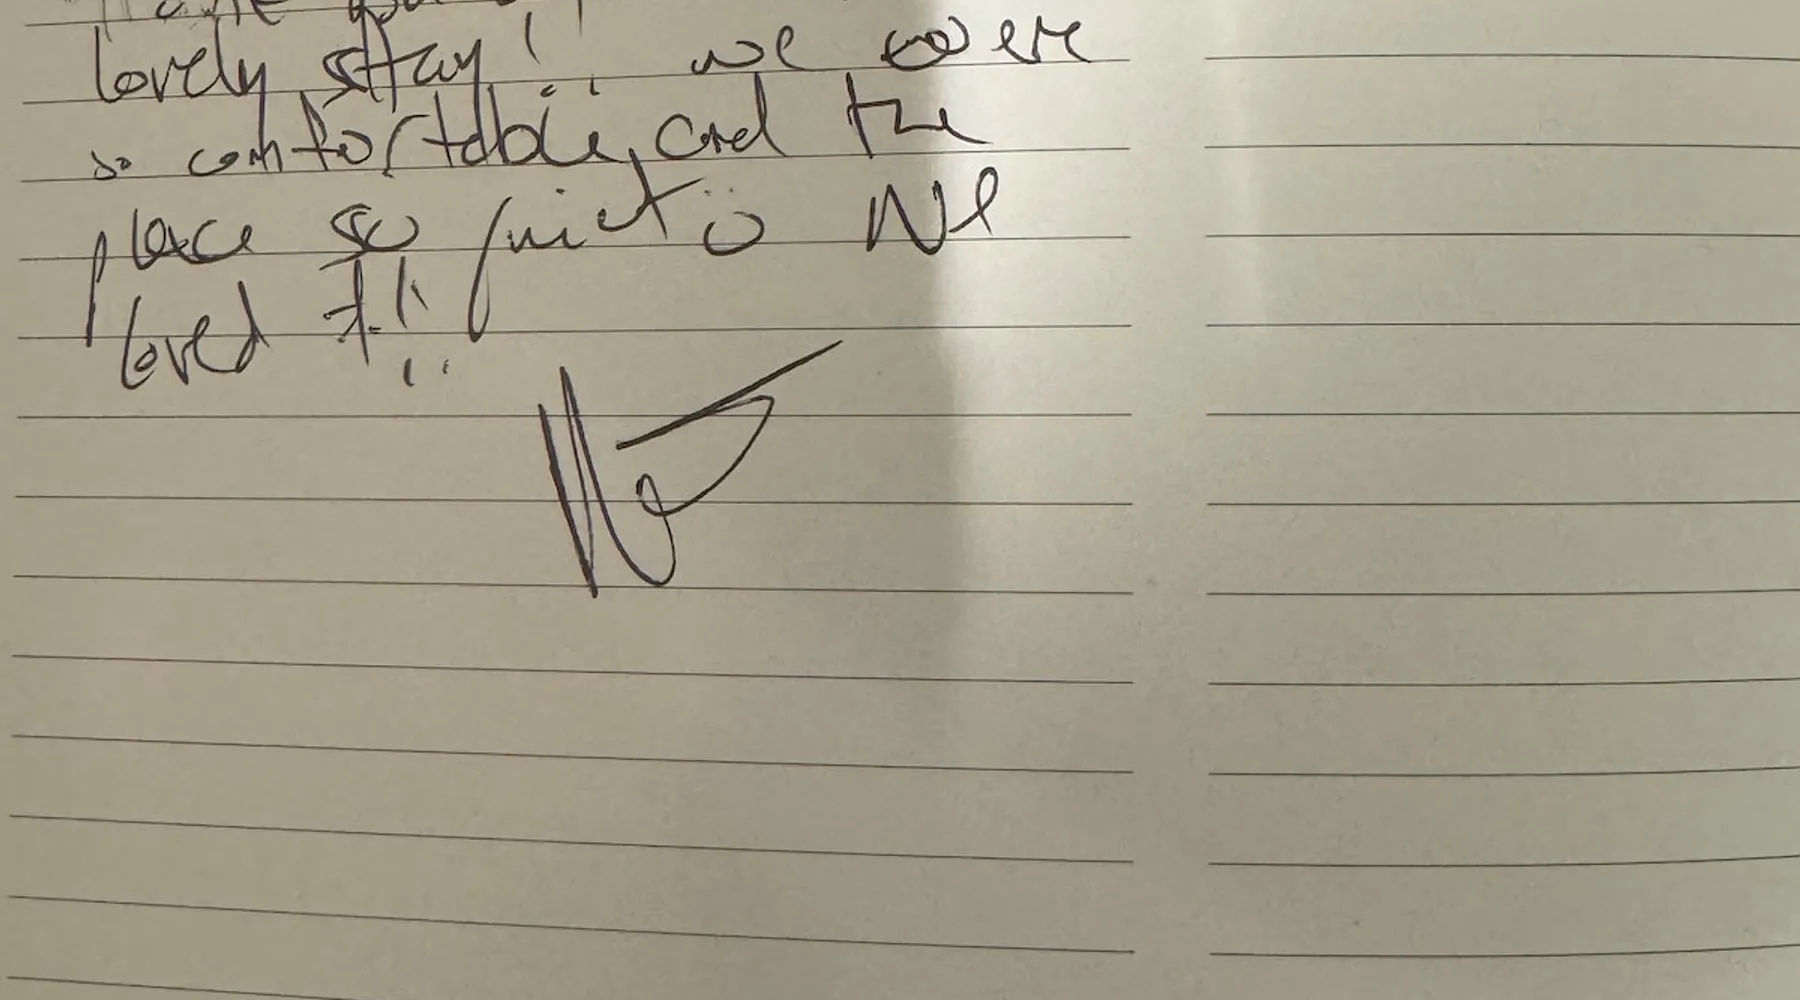 lovely stay!! we were
so comfortable, and the
place so quiet ü We
loved it!!